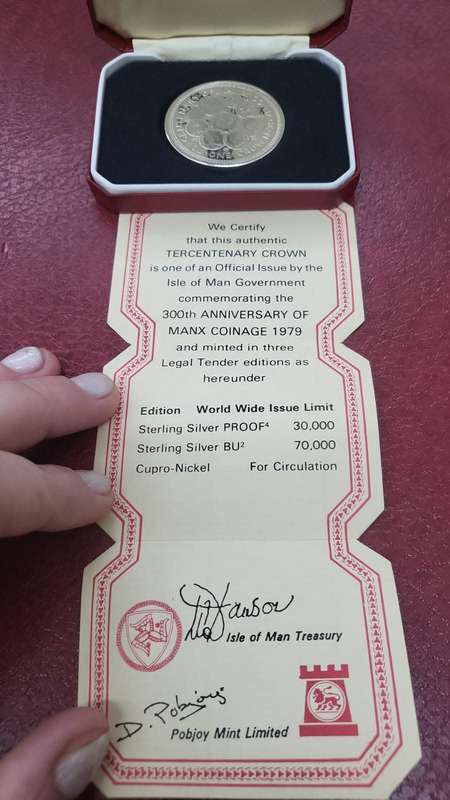 ONE
We Certify
that this authentic
TERCENTENARY CROWN
is one of an Official Issue by the
Isle of Man Government
commemorating the
300th ANNIVERSARY OF
MANX COINAGE 1979
and minted in three
Legal Tender editions as
hereunder
Edition World Wide Issue Limit
Sterling Silver PROOF⁴ 30,000
Sterling Silver BU² 70,000
Cupro-Nickel For Circulation
Isle of Man Treasury
D. Pobjoy
Pobjoy Mint Limited